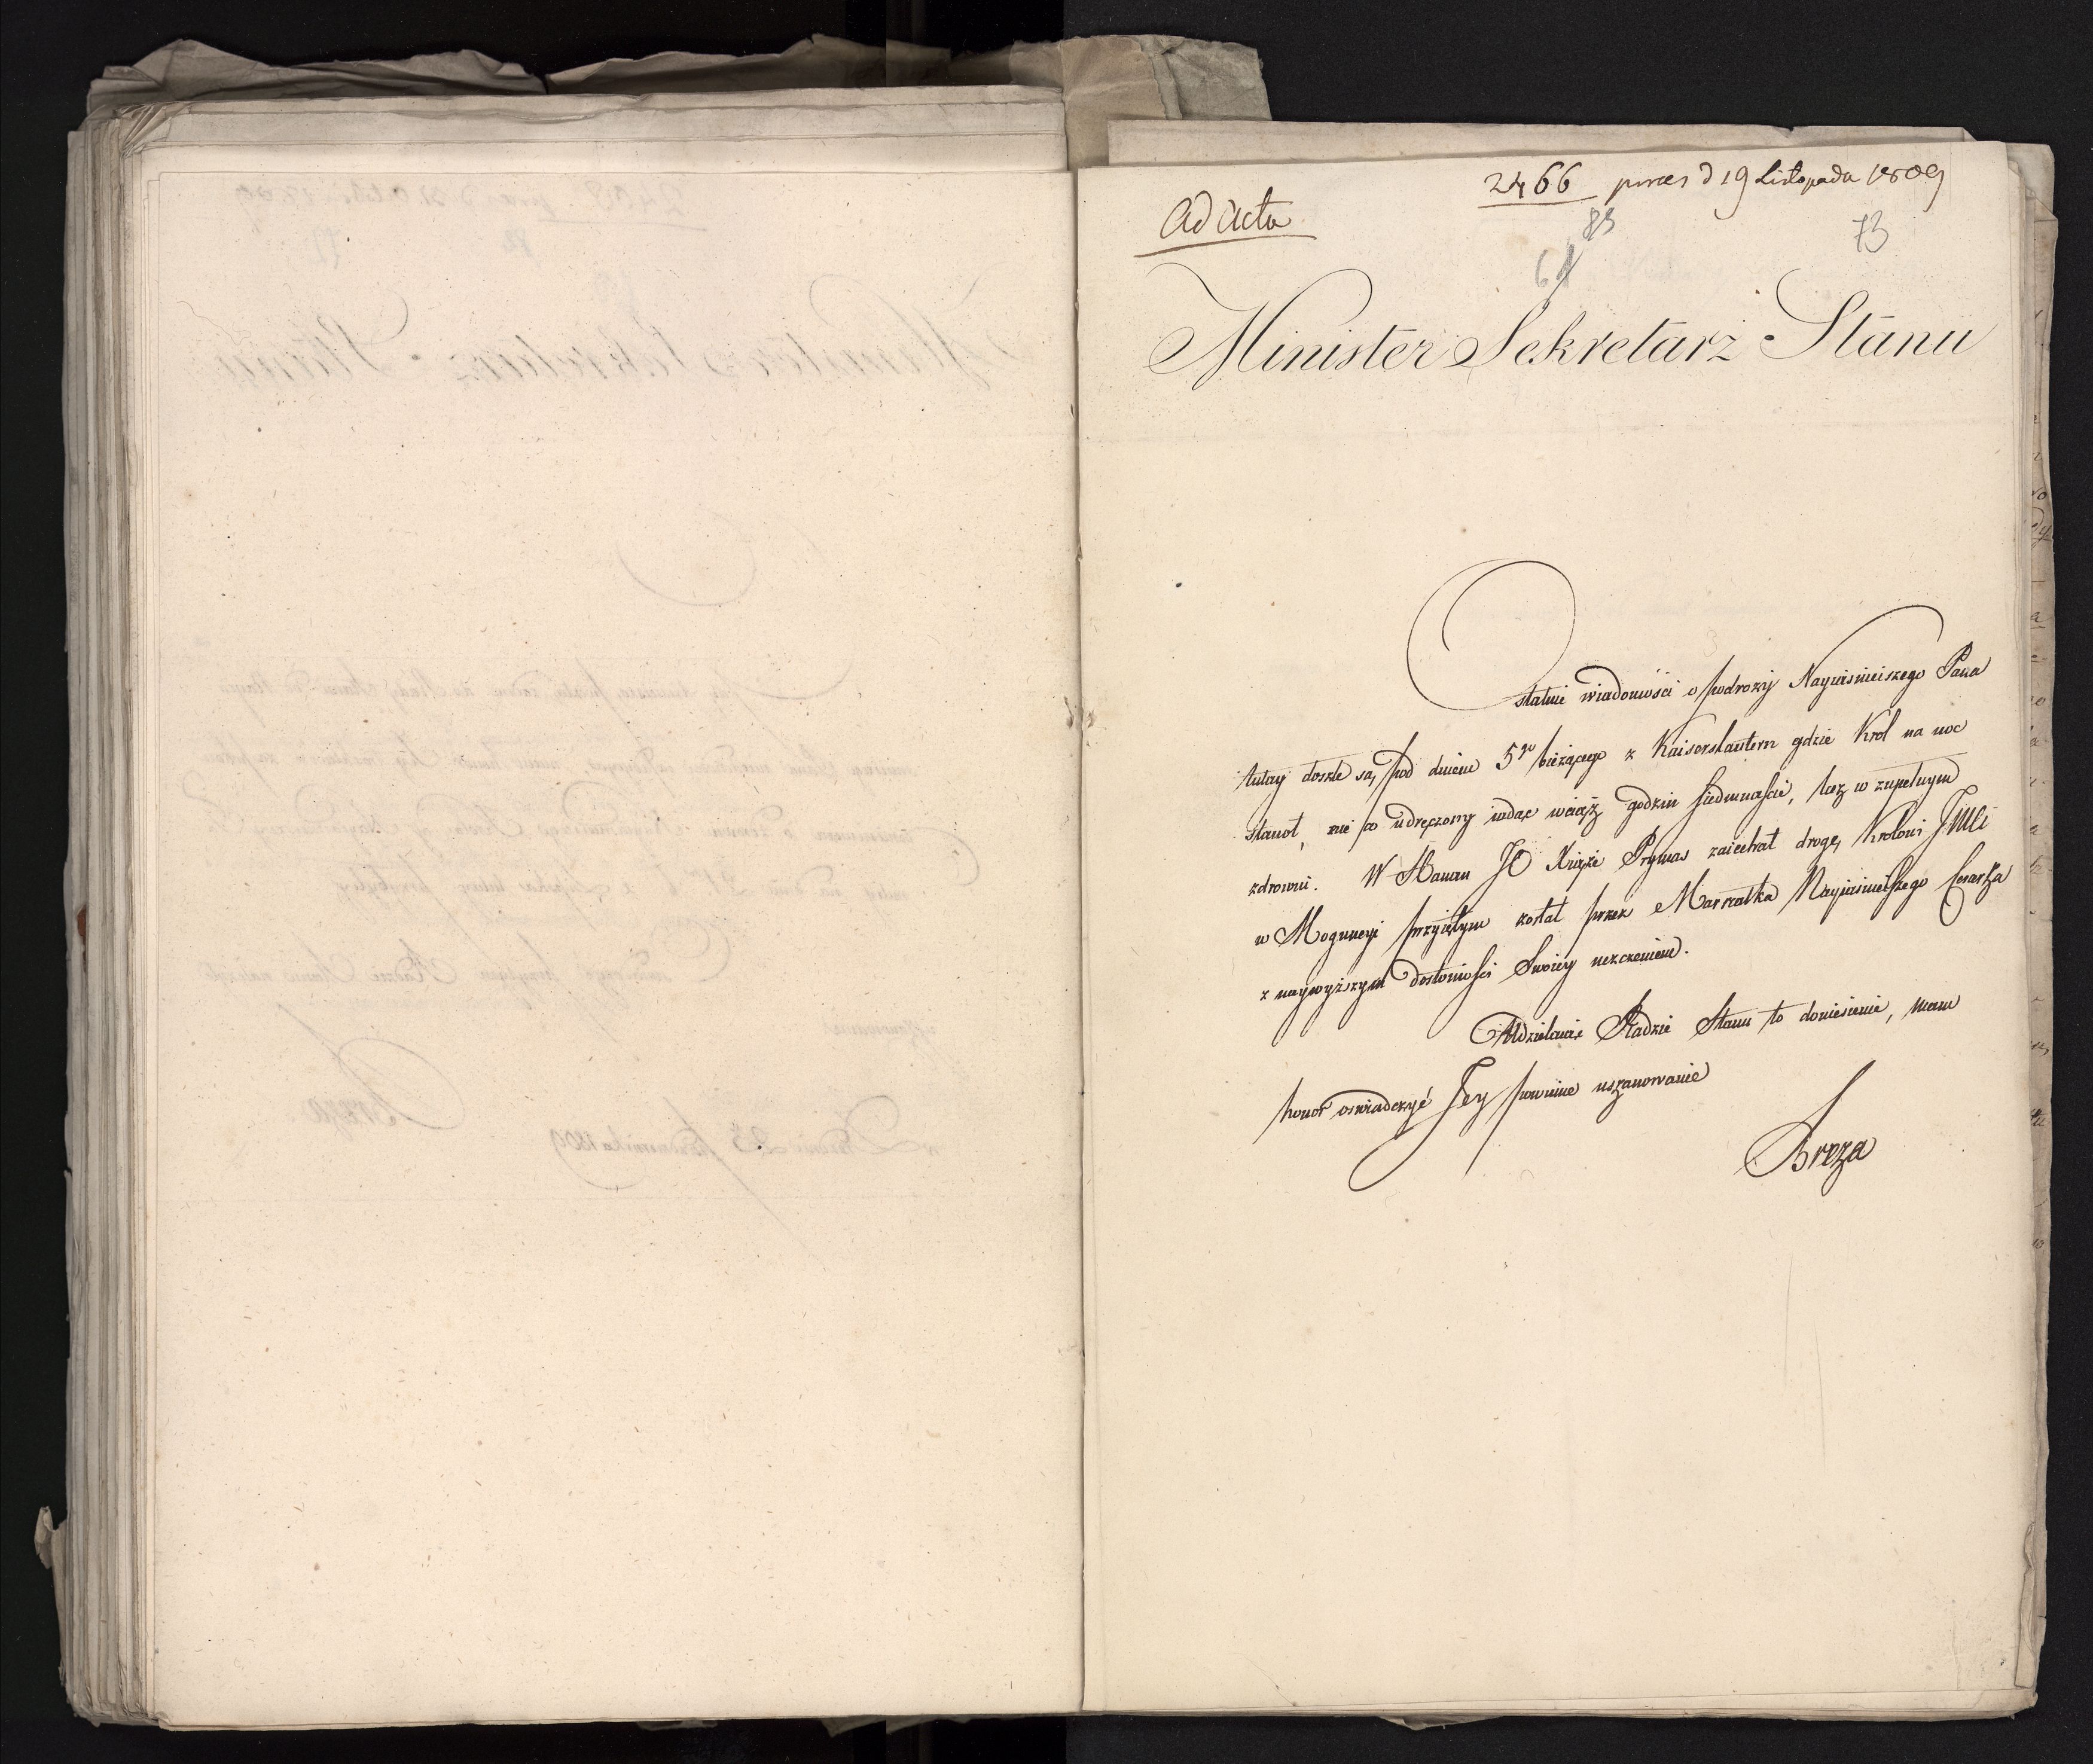 2466 praes d 19 Listopada 1809
Ad Acta
83
73
61
Minister Sekretarz Stanu
Ostatnie wiadomości o podroży Nayiaśnieiszego Pana
tutay doszłe są, pod dniem 5go bieżącego z Kaiserslautern gdzie Król na noc
stanoł, nie co udręczony iadąc wciąż godzin siedmnaście, lecz w zupełnym
zdrowiu. W Hanau JO Xiąże Prymas zaiechał drogę, Krolowi JMCi
w Moguncyi przyiętym został przez Marszałka Nayiaśnieiszego Cesarza
z naywyższym dostoiności Swoiey uczczeniem.
Udzielaiąc Radzie Stanu to doniesienie, mam
honor oswiadczyć Jey powinne uszanowanie
Breza